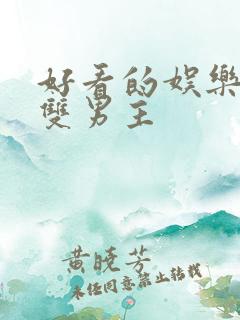 好看的娛樂
雙男主
黄晓芳
未经同意禁止转载